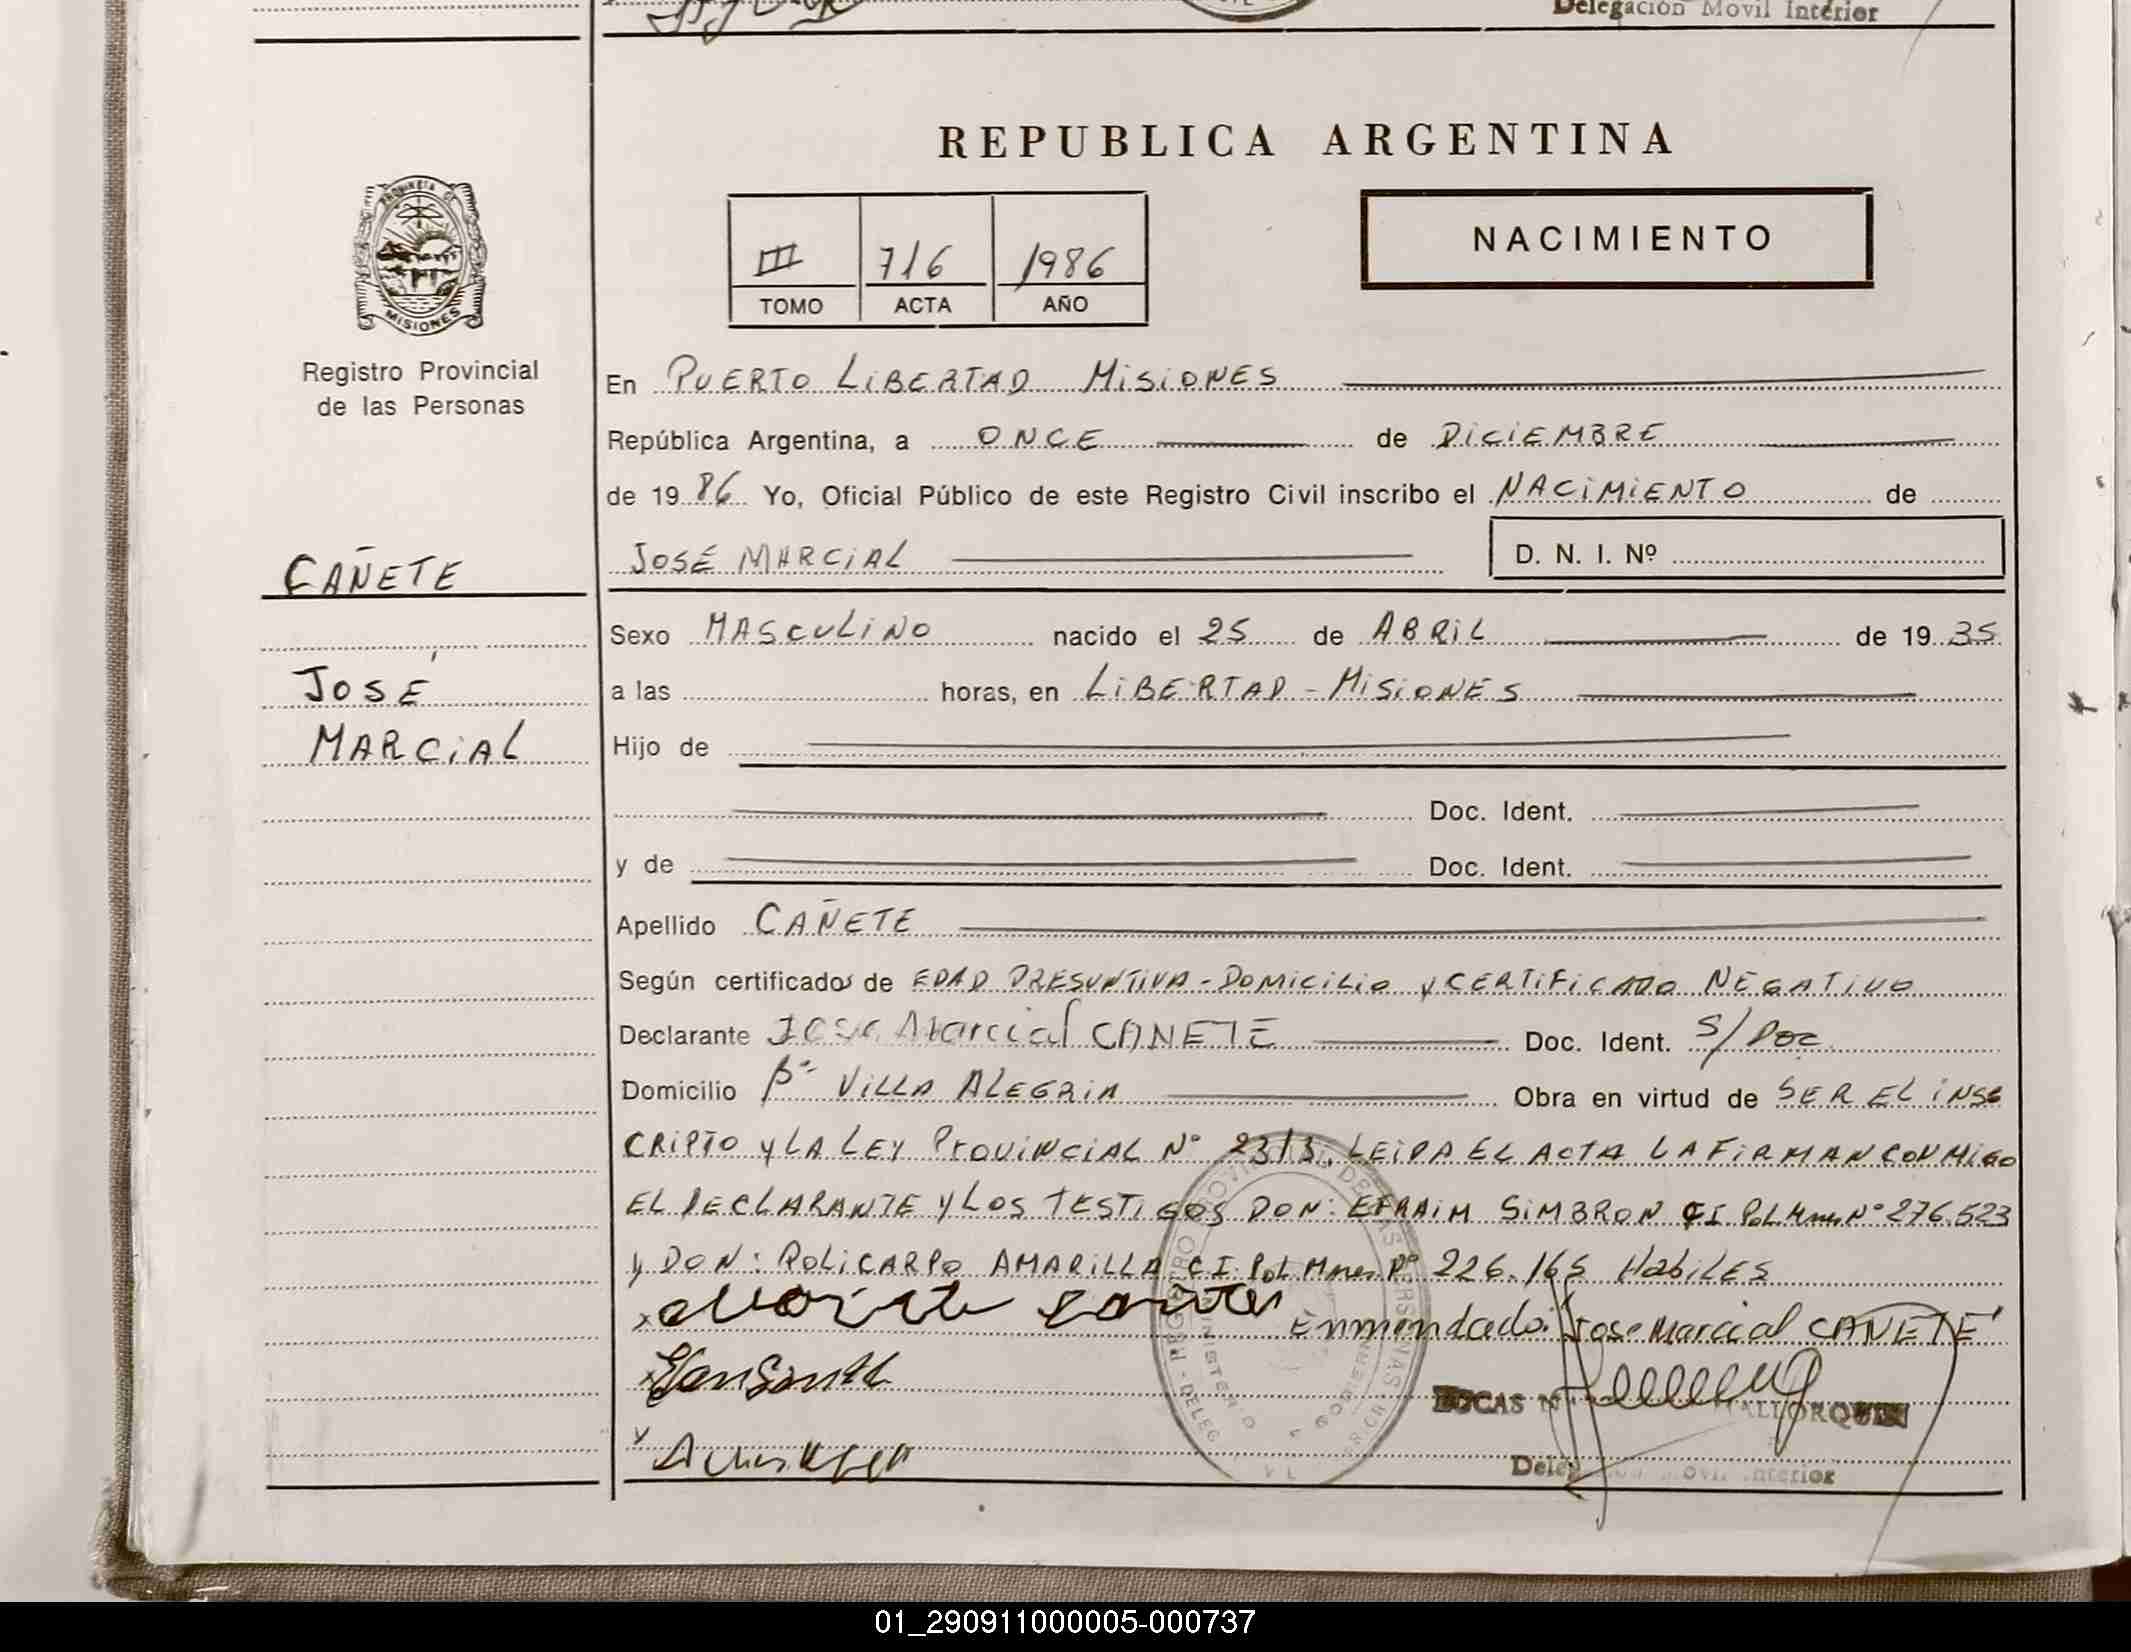 Delegación Movil Interior
REPUBLICA ARGENTINA
PROVINCIA DE
MISIONES
III 716 1986
TOMO ACTA AÑO
NACIMIENTO
Registro Provincial
de las Personas
En PUERTO LIBERTAD MISIONES
República Argentina, a ONCE de DICIEMBRE
de 19 86 Yo, Oficial Público de este Registro Civil inscribo el NACIMIENTO de
JOSÉ MARCIAL D. N. I. Nº
CAÑETE
Sexo MASCULINO nacido el 25 de ABRIL de 19 35
JOSÉ
a las horas, en LIBERTAD - MISIONES
MARCIAL
Hijo de
Doc. Ident.
y de Doc. Ident.
Apellido CAÑETE
Según certificados de EDAD PRESUNTIVA - DOMICILIO y CERTIFICADO NEGATIVO
Declarante Jose Marcial CAÑETE Doc. Ident. S/Doc
Domicilio Bº VILLA ALEGRIA Obra en virtud de SER EL INSC
CRIPTO y LA LEY PROVINCIAL Nº 2313, LEIDA EL ACTA LA FIRMAN CONMIGO
EL DECLARANTE y LOS TESTIGOS DON: EFRAIM SIMBRON CI Pol Mnes Nº 276.523
y DON: POLICARPO AMARILLA CI Pol Mnes Nº 226.165 HábiLES
Enmendado: Jose Marcial CAÑETE
LUCAS MALLORQUIN
Delegación Movil Interior
01_290911000005-000737